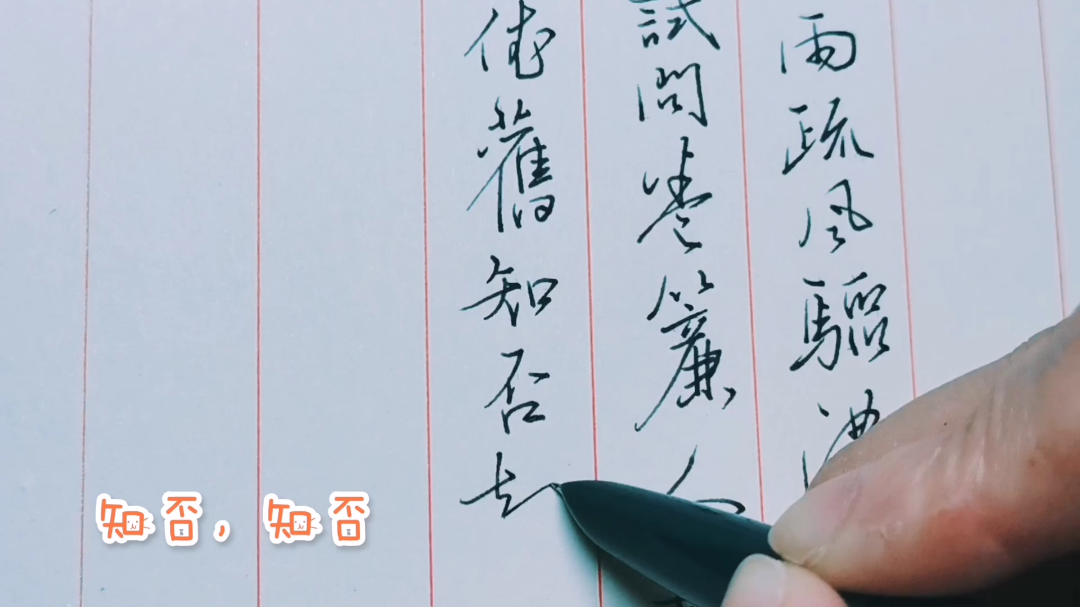 雨疏風驟
試問卷簾人
依舊知否知
知否，知否